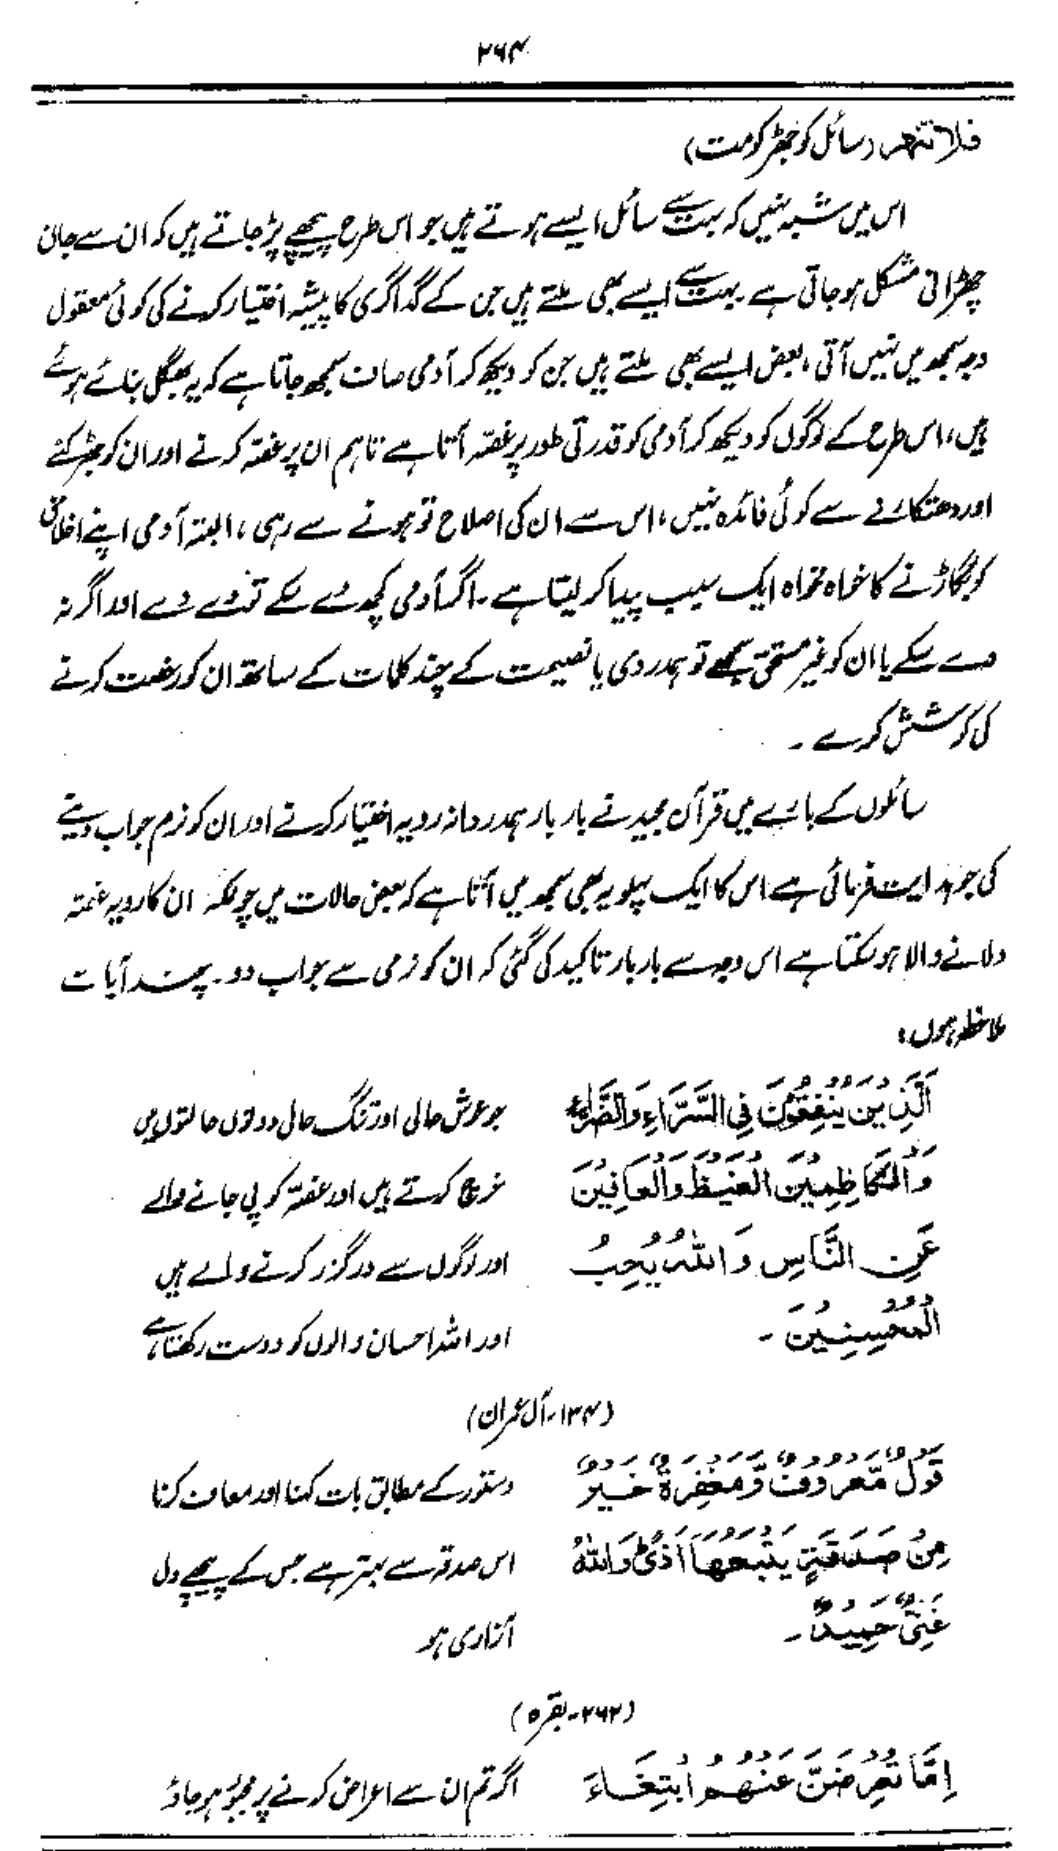 ۲۶۴
فلا تنہر (سائل کو جھڑکو مت)
اس میں شبہ نہیں کہ بہت سے سائل ایسے ہوتے ہیں جو اس طرح پیچھے پڑ جاتے ہیں کہ ان سے جان
چھڑانی مشکل ہو جاتی ہے بہت سے ایسے بھی ملتے ہیں جن کے گداگری کا پیشہ اختیار کرنے کی کوئی معقول
وجہ سمجھ میں نہیں آتی، بعض ایسے بھی ملتے ہیں جن کو دیکھ کر آدمی صاف سمجھ جاتا ہے کہ یہ بھیگل بنائے ہوئے
ہیں، اس طرح کے لوگوں کو دیکھ کر آدمی کو قدرتی طور پر غصہ آتا ہے تاہم ان پر غصہ کرنے اور ان کو جھڑکنے
اور دھتکارنے سے کوئی فائدہ نہیں، اس سے ان کی اصلاح تو ہونے سے رہی، البتہ آدمی اپنے اخلاق
کو بگاڑنے کا خواہ مخواہ ایک سبب پیدا کر لیتا ہے۔ اگر آدمی کچھ دے سکے تو دے دے اور اگر نہ
دے سکے یا ان کو غیر مستحق سمجھے تو ہمدردی یا نصیحت کے چند کلمات کے ساتھ ان کو رخصت کرنے
کی کوشش کرے۔
سائلوں کے بارے میں قرآن مجید نے بار بار ہمدردانہ رویہ اختیار کرنے اور ان کو نرم جواب دینے
کی جو ہدایت فرمائی ہے اس کا ایک پہلو یہ بھی سمجھ میں آتا ہے کہ بعض حالات میں چونکہ ان کا رویہ غصہ
دلانے والا ہو سکتا ہے اس وجہ سے بار بار تاکید کی گئی کہ ان کو نرمی سے جواب دو۔ چند آیات
ملاحظہ ہوں:
اَلَّذِينَ يُنْفِقُوْنَ فِي السَّرَّاءِ وَالضَّرَّاءِ جو خوش حالی اور تنگ حالی دونوں حالتوں میں
وَالْكَاظِمِيْنَ الْغَيْظَ وَالْعَافِيْنَ خرچ کرتے ہیں اور غصہ کو پی جانے والے
عَنِ النَّاسِ وَاللّٰهُ يُحِبُّ اور لوگوں سے درگزر کرنے والے ہیں
الْمُحْسِنِيْنَ۔ اور اللہ احسان والوں کو دوست رکھتا ہے،
(۱۳۴۔ آل عمران)
قَوْلٌ مَّعْرُوْفٌ وَّمَغْفِرَةٌ خَيْرٌ دستور کے مطابق بات کہنا اور معاف کرنا
مِنْ صَدَقَةٍ يَّتْبَعُهَا اَذًى وَاللّٰهُ اس صدقہ سے بہتر ہے جس کے پیچھے دل
غَنِىٌّ حَمِيْدٌ۔ آزاری ہو
(۲۶۲۔ بقرہ)
اِمَّا تُعْرِضَنَّ عَنْهُمُ ابْتِغَاءَ اگر تم ان سے اعراض کرنے پر مجبور ہو جاؤ